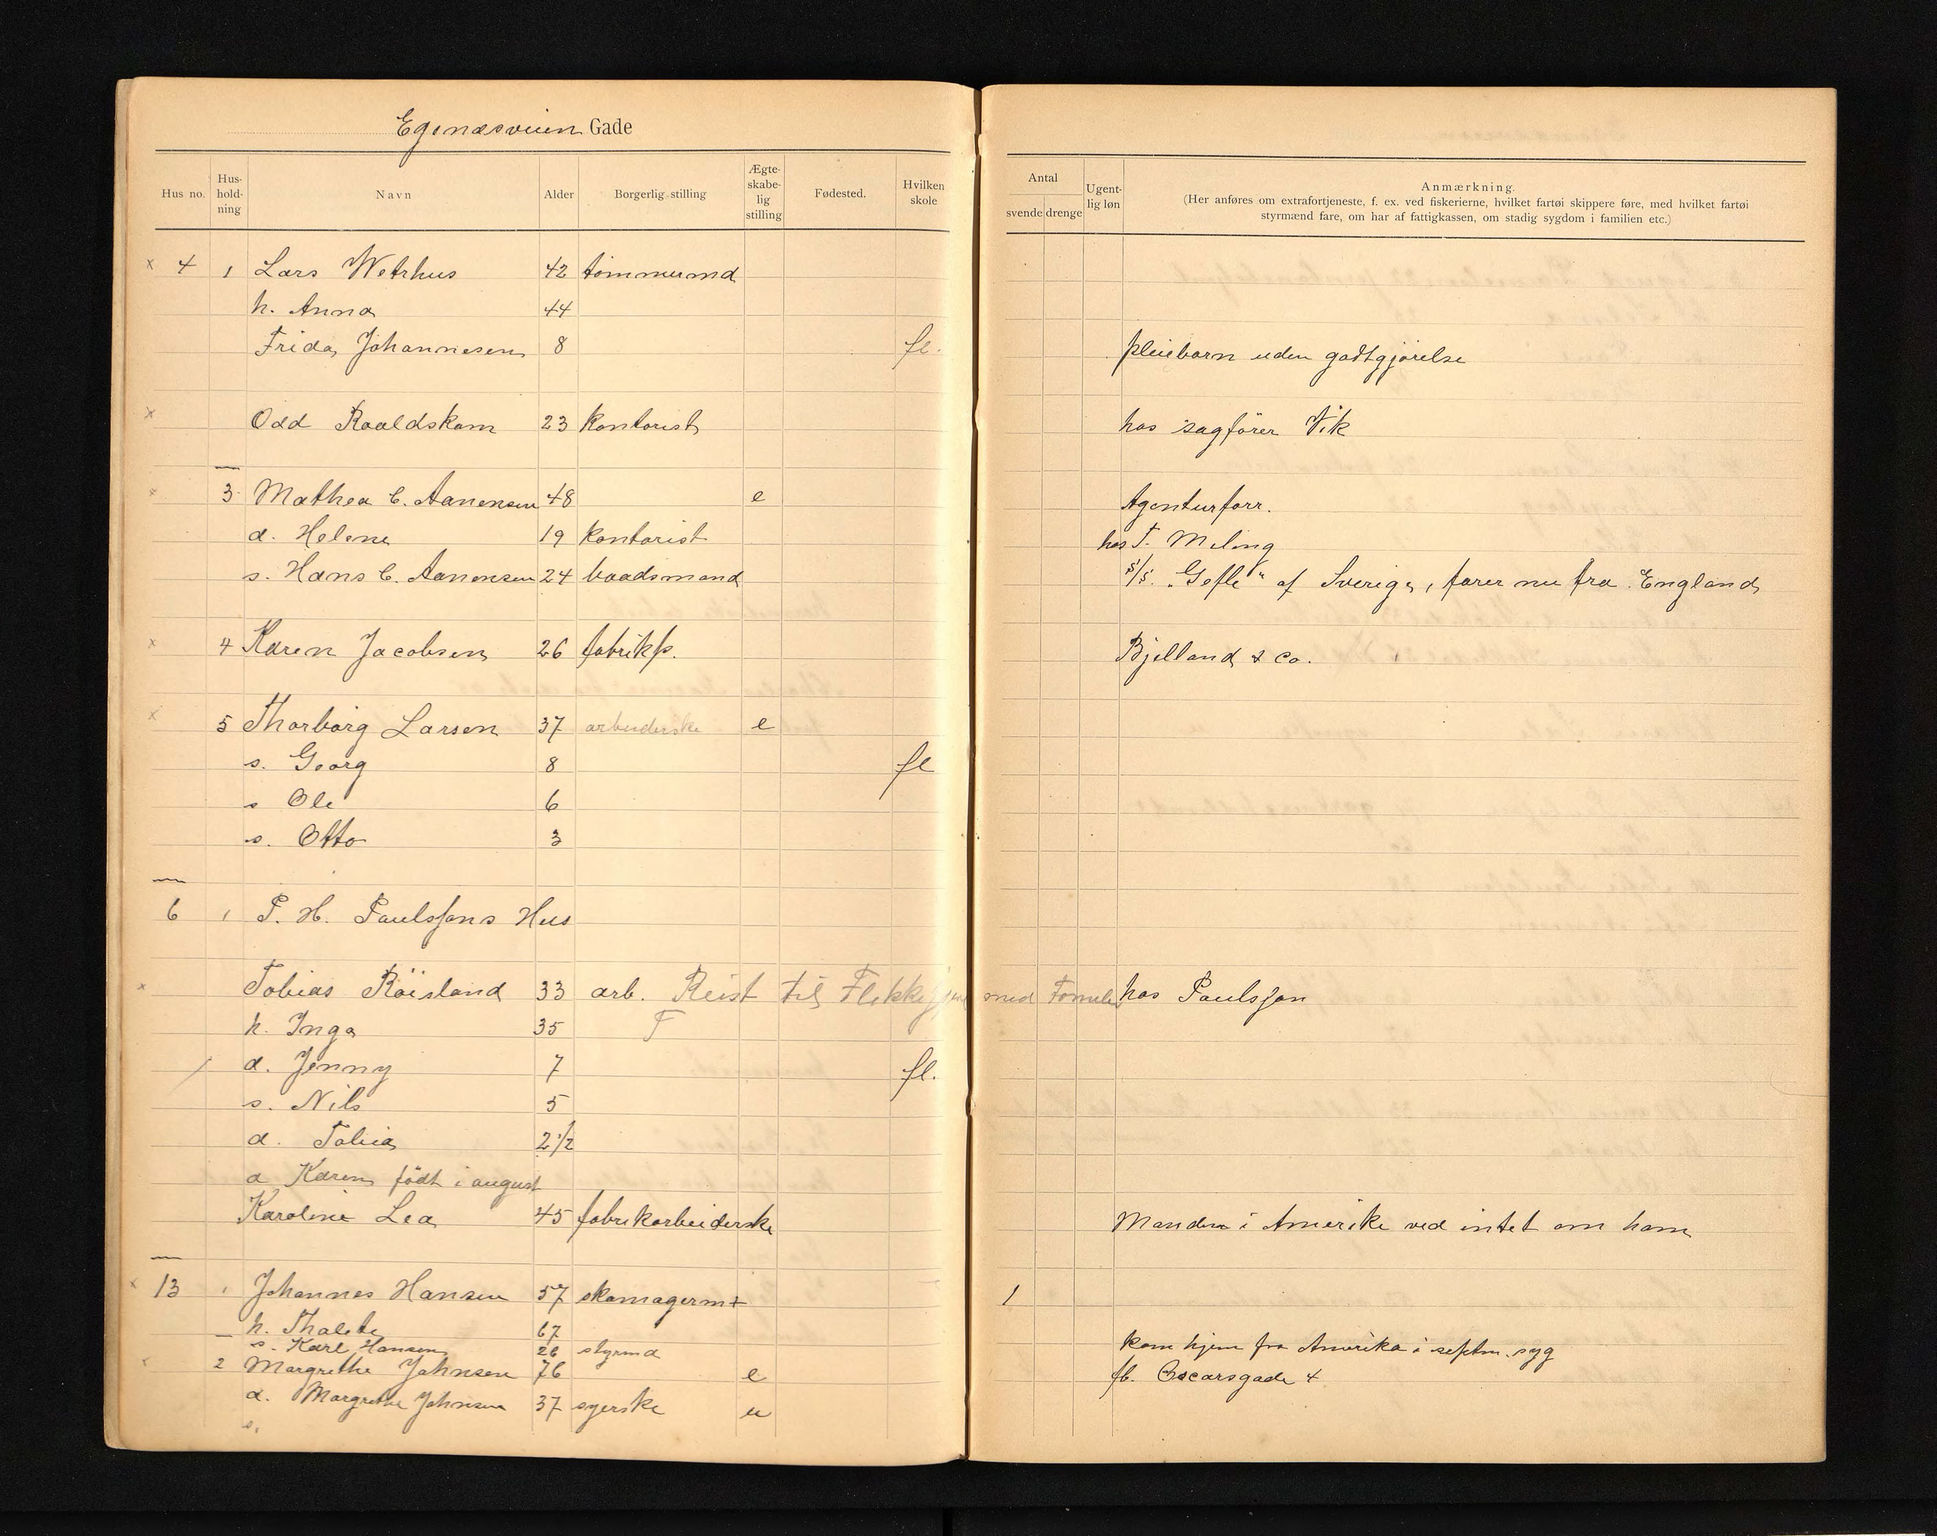 Egenæsveien Gade
Hus no. Hus-hold-ning Navn Alder Borgerlig stilling Ægte-skabe-lig stilling Fødested. Hvilken skole Antal svende drenge Ugent-lig løn Anmærkning.
(Her anføres om extrafortjeneste, f. ex. ved fiskerierne, hvilket fartøi skippere føre, med hvilket fartøi
styrmænd fare, om har af fattigkassen, om stadig sygdom i familien etc.)
x 4 1 Lars Wetrhus 42 tømmermd
h. Anna 44
Frida Johannesen 8 fl. pleiebarn uden godtgjørelse
x Odd Roaldskam 23 kontorist hos sagfører Vik
x 3 Mathea C. Aanensen 48 e Agenturforr.
d. Helene 19 kontorist hos T. Meling
s. Hans C. Aanensen 24 baadsmand s/s. "Gefle" af Sverige, farer nu fra England
x 4 Karen Jacobsen 26 fabrikp. Bjelland & co.
x 5 Thorborg Larsen 37 arbeiderske e
s. Georg 8 fl
s Ole 6
s. Otto 3
6 1 P. H. Paulssons Hus
x Tobias Röisland 33 arb. Reist til med Familie hos Paulsson
h. Inga 35 F
d. Jenny 7 fl.
s. Nils 5
d. Tobia 2 1/2
d Karen födt i august
Karoline Lea 45 fabrikarbeiderske Manden i Amerika ved intet om ham
x 13 1 Johannes Hansen 57 skomagerm+ 1
h. Thalete 67
s. Karl Hansen 26 styrmd kom hjem fra Amerika i septm. syg
x 2 Margrethe Johnsen 76 e fl. Oscarsgade 4
d. Margrethe Johnsen 37 syerske u
s.